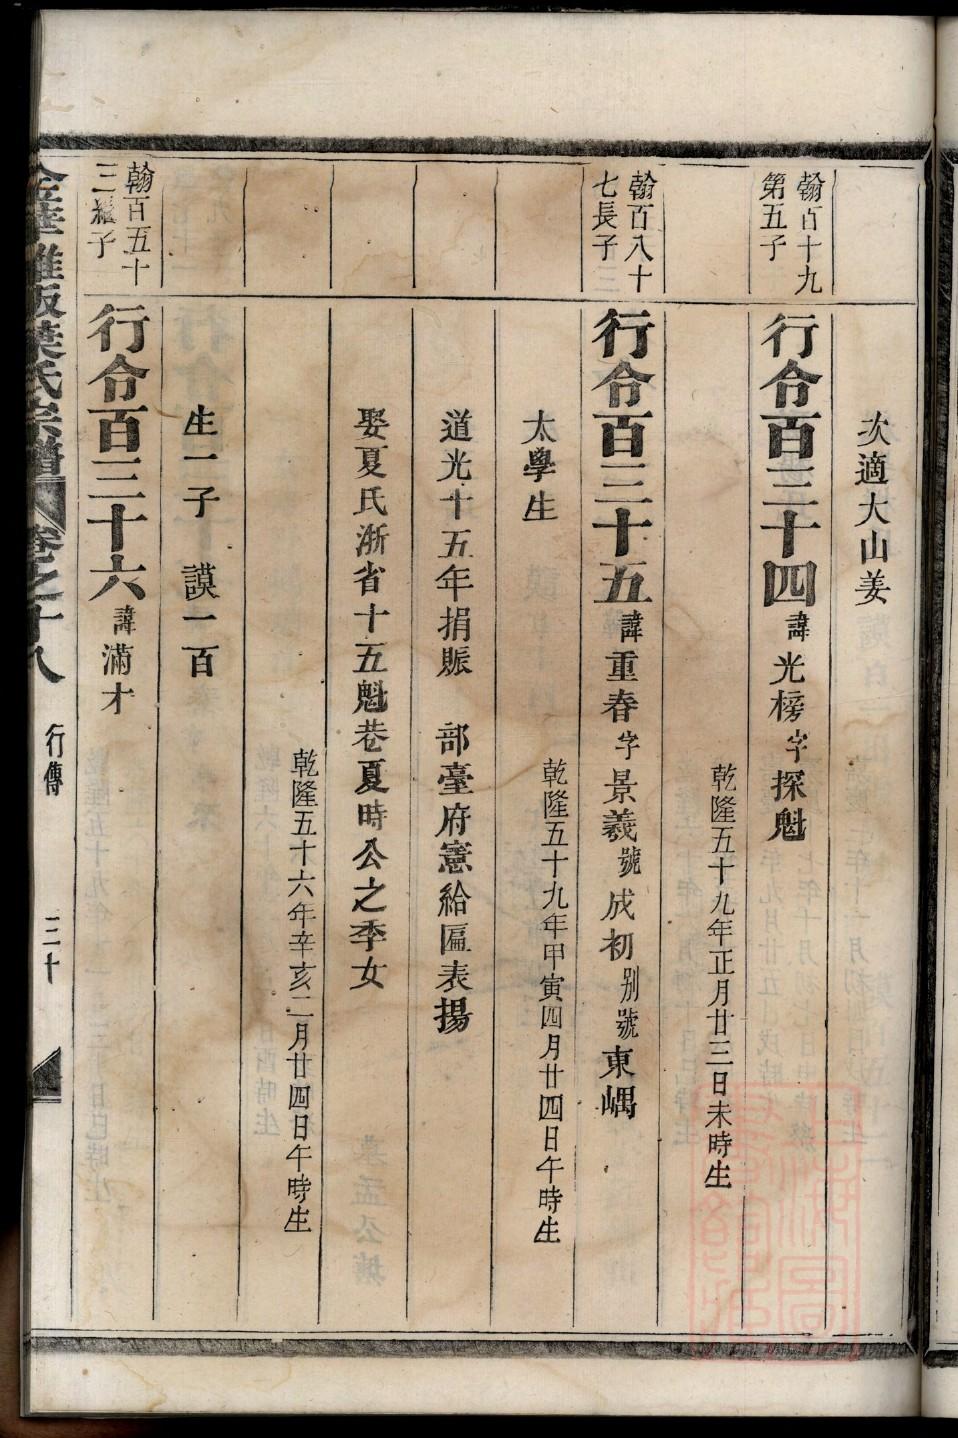 次適大山姜
翰百十九
第五子
行令百三十四諱光榜字探魁
乾隆五十九年正月廿三日未時生
翰百八十
七長子
行令百三十五諱重春字景義號成初別號東嵎
乾隆五十九年甲寅四月廿四日午時生
太學生
道光十五年捐賑 部臺府憲給匾表揚
娶夏氏浙省十五魁巷夏時公之季女
乾隆五十六年辛亥二月廿四日午時生
生一子 謨一百
翰百五十
三繼子
行令百三十六諱滿才
葉氏宗譜 卷之十八 行傳 三十